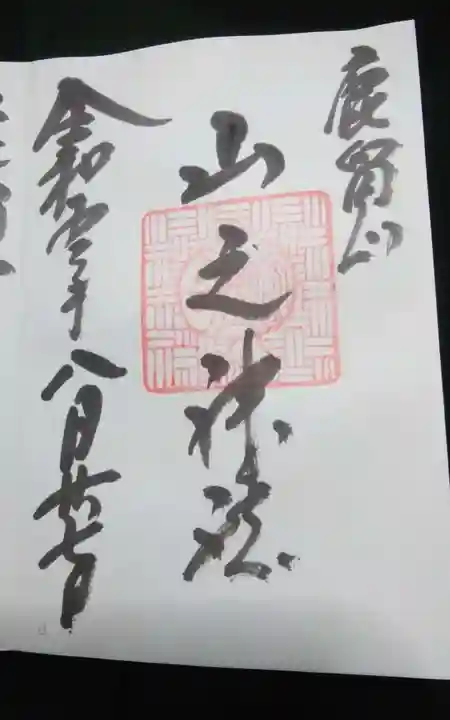 鹿留山
山之神社
令和元年八月廿七日